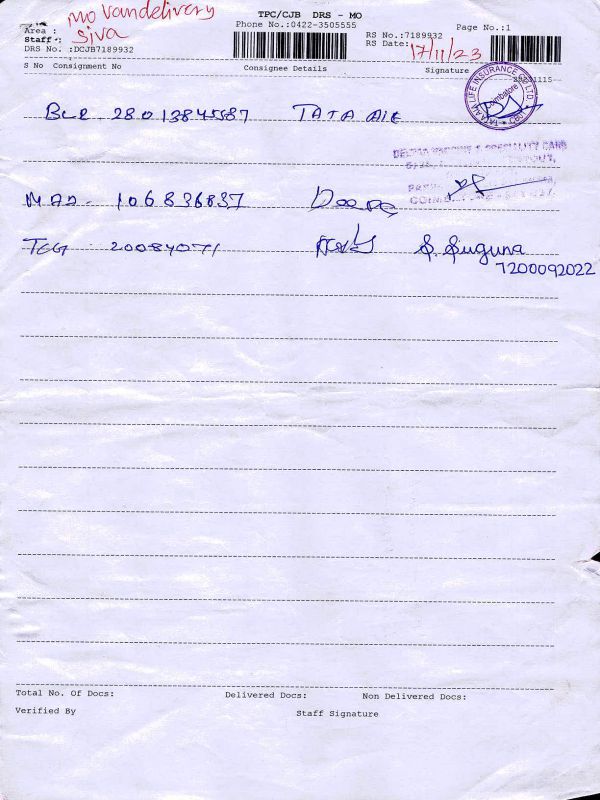 mo vandelivery
TPC/CJB DRS - MO
Area :
Phone No.:0422-3505555
Page No.:1
Staff : Siva
RS No.:7189932
DRS No. :DCJB7189932
RS Date: 17/11/23
S No Consignment No Consignee Details Signature
TATA AIA LIFE INSURANCE CO LTD Coimbatore
BLR 28013845587 TATA AIA
MAD - 106836837
TCG 20084071 S. Suguna
7200092022
Total No. Of Docs: Delivered Docs: Non Delivered Docs:
Verified By Staff Signature